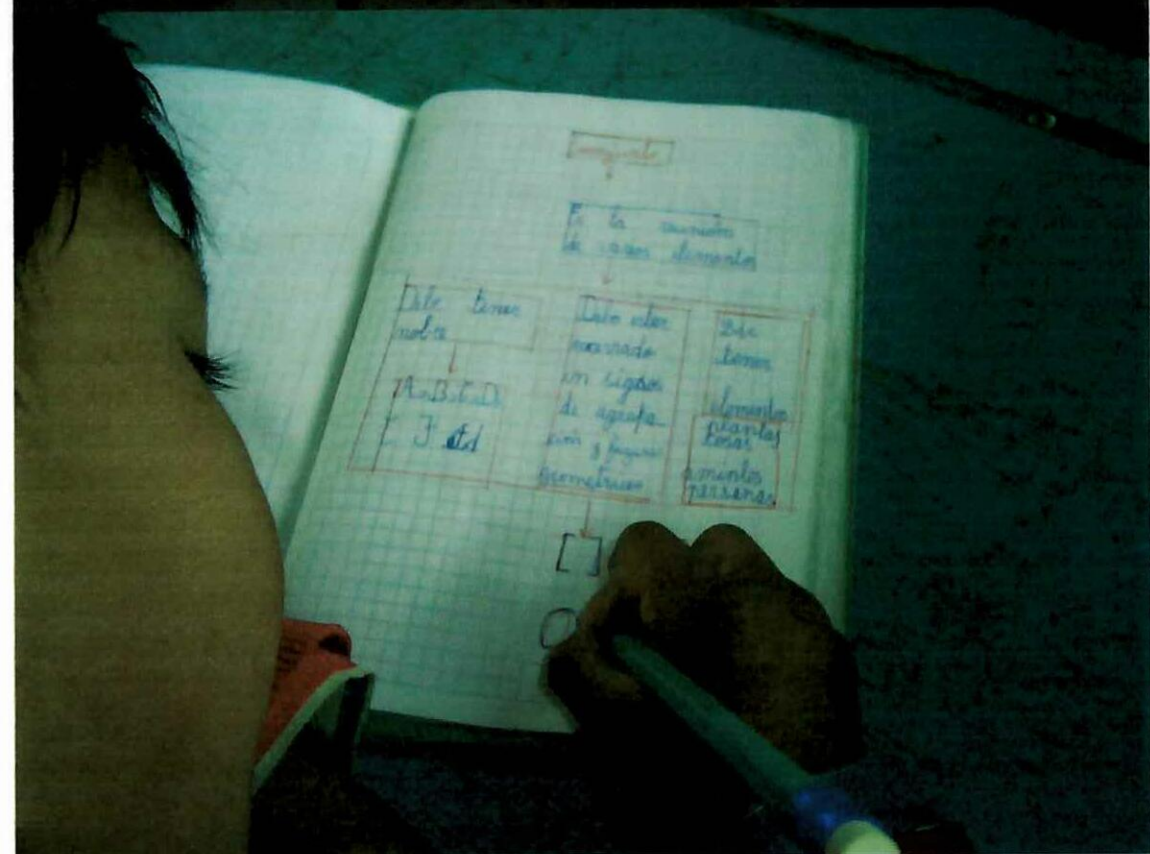 Conjunto
Es la reunión
de varios elementos
Debe tener
nobre
A B C D
E F
Debe estar
encerrado
en signos
de agrupa
ción y figuras
geometricas
Debe
tener
elementos
plantas
cosas
amimles
personas
[ ]